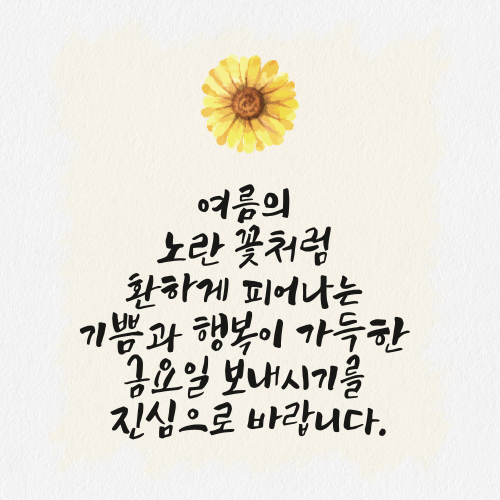 여름의
노란 꽃처럼
환하게 피어나는
기쁨과 행복이 가득한
금요일 보내시기를
진심으로 바랍니다.